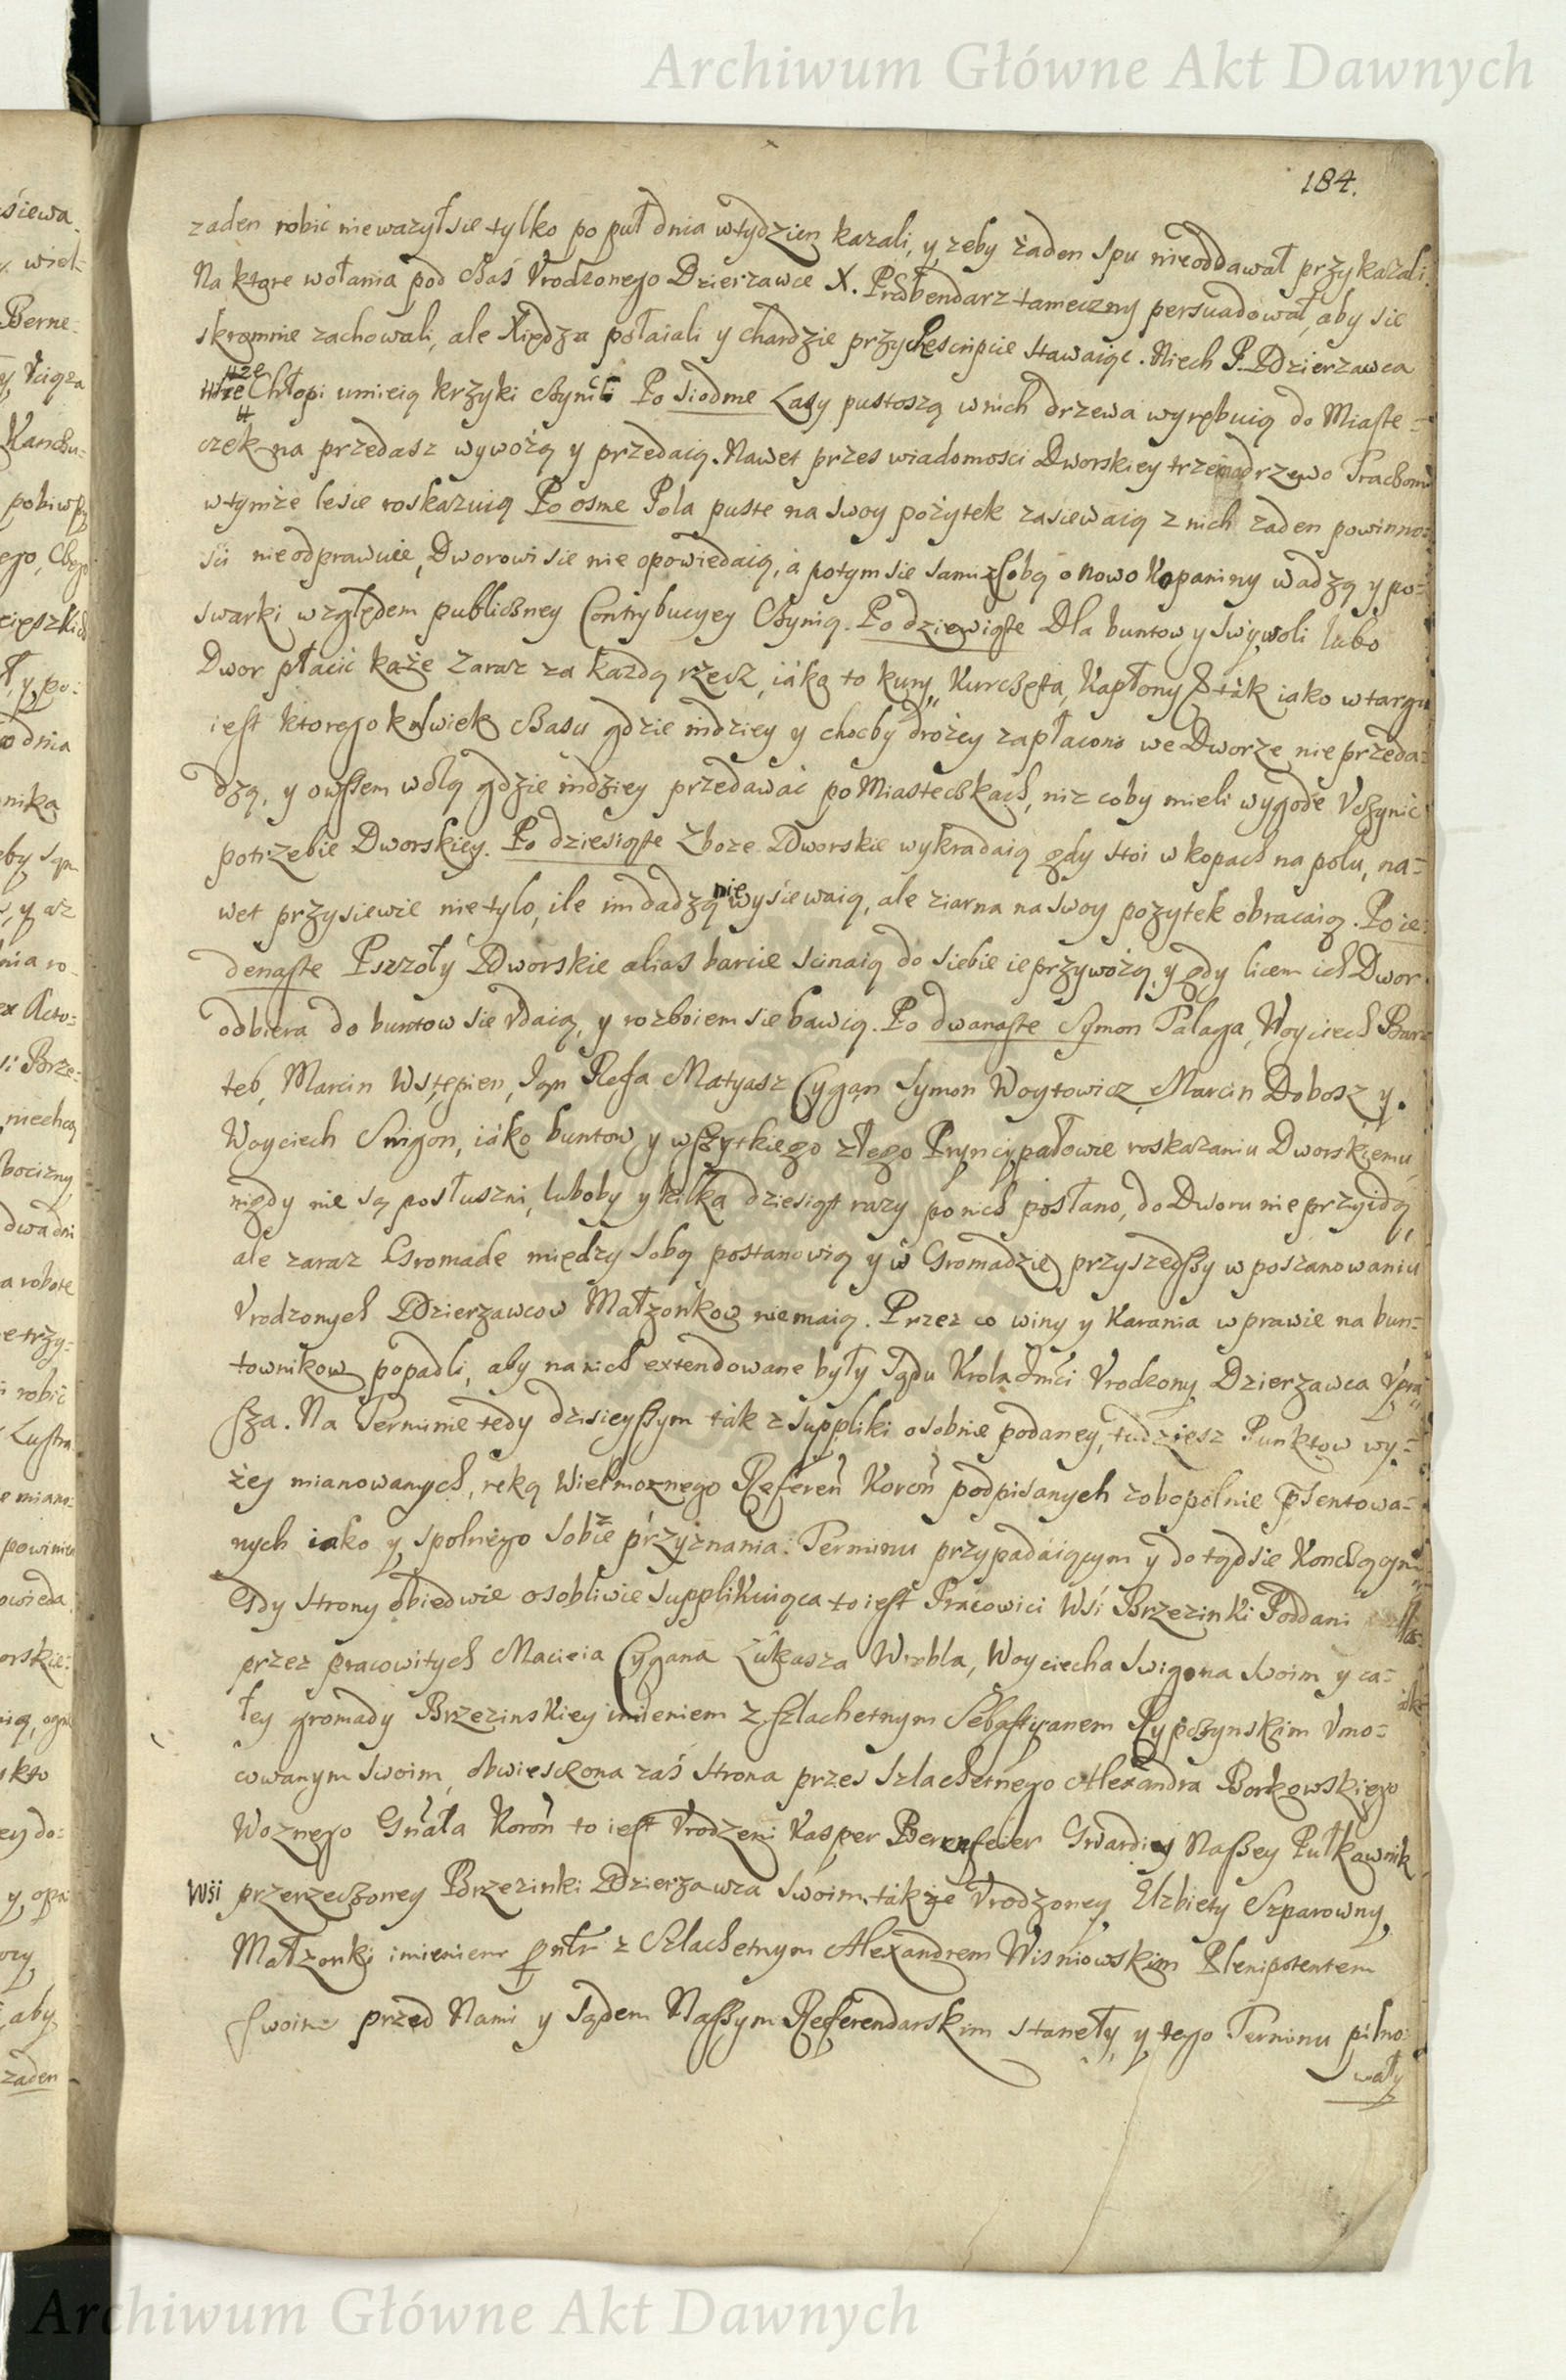 Archiwum Główne Akt Dawnych
184.
zaden robić niewazył sie tylko po puł dnia wtydzien kazali, y zeby żaden spu nieoddawał przykazali.
Na ktore wołania pod czas Vrodzonego Dzierzawce X. Præbendarz tameczny persuadował, aby sie
skromnie zachowali, ale Xiędza połaiali y chardzie przy Rescripcie stawaiąc. Niech P. Dzierzawca
Chłopi umieią krzyki czynić Po siodme Lasy pustoszą w nich drzewa wyrębuią do Miaste=
czek na przedasz wywożą y przedaią. Nawet przes wiadomosci Dworskiey drzewo Traczom
wtymże lesie roskazuią Po osme Pola puste na swoy pożytek zasiewaią z nich zaden powinno=
ści nieodprawuie, Dworowi sie nie opowiedaią, a potym sie sami zsobą o nowo Kopaniny wadzą y po=
swarki względem publiczney Contrybucyey Czynią. Po dziewiąte Dla buntow y swywoli lubo
Dwor płacić każe zaraz za każdą rzecz, iáko to kury, Kurczęta, Kapłony & ták iako w targu
iest ktoregokolwiek Czasu gdzie indziey y choćby drożey zapłacono we Dworze nie przeda=
dzą, y owszem wolą gdzie indziey przedawać po Miasteczkach, niz coby mieli wygode Vczynić
potrzebie Dworskiey. Po dziesiąte Zboze Dworskie wykradaią gdy stoi w kopach na polu, na=
wet przysiewie nie tylo, ile im dadzą nie wysiewaią, ale ziarna na swoy pozytek obracaią. Po ie=
denaste Pszczoły Dworskie alias barcie scinaią do siebie ie przywożą, y gdy licem ich Dwor
odbiera do buntow sie vdaią, y rozboiem sie bawią. Po dwanaste Symon Palaga, Woyciech Bar=
teb, Marcin Wstępien, Jan Refa Matyasz Cygan Symon Woytowicz, Marcin Dobosz y
Woyciech Swigon, iáko buntow y wszytkiego złego Pryncypałowie roskazaniu Dworskiemu
nigdy nie są posłuszni, luboby y kilka dziesiąt razy po nich posłano, do Dworu nie przyidą,
ale zaraz Gromade między sobą postanowią y w Gromadzie przyszedszy w poszanowaniu
Vrodzonych Dzierzawcow Małzonkow niemaią. Przez co winy y karania w prawie na bun=
townikow popadli, aby na nich extendowane były Sądu Krola Jmci Vrodzony Dzierzawca Vpra=
sza. Na Terminie tedy dzisieyszym ták z suppliki osobnie podaney, tudziesz Punktow wy=
żey mianowanych, reką Wielmoznego Referen Koron podpisanych zobopolnie psentowa=
nych iako y spolnego sobie przyznania. Terminu przypadaiącym y do tąd sie Konczącym
Gdy strony obiedwie osobliwie supplikuiąca to iest Pracowici Wśi Brzezinki Poddani
przez pracowitych Macieia Cygana Łukasza Wrobla, Woyciecha Swigona swoim y ca=
łey gromady Brzezinskiey imieniem z Szlachetnym Sebastyanem Rypczynskim Vmo=
cowanym swoim, obwieszona zaś strona przes Szlachetnego Alexandra Borkowskiego
Woznego Gnała Koron to iest Vrodzeni Kasper Berenfeier Gwardiey Naszey Pułkawnik
Wśi przerzeczoney Brzezinki Dzierzawca swoim, tákże Vrodzoney Elzbiety Szparowny,
Małzonki imieniem pntr z Szlachetnym Alexandrem Wisniowskim Plenipotentem
swoim przed Nami y Sądem Naszym Referendarskim staneły y tego Terminu pilno=
wały
Archiwum Główne Akt Dawnych